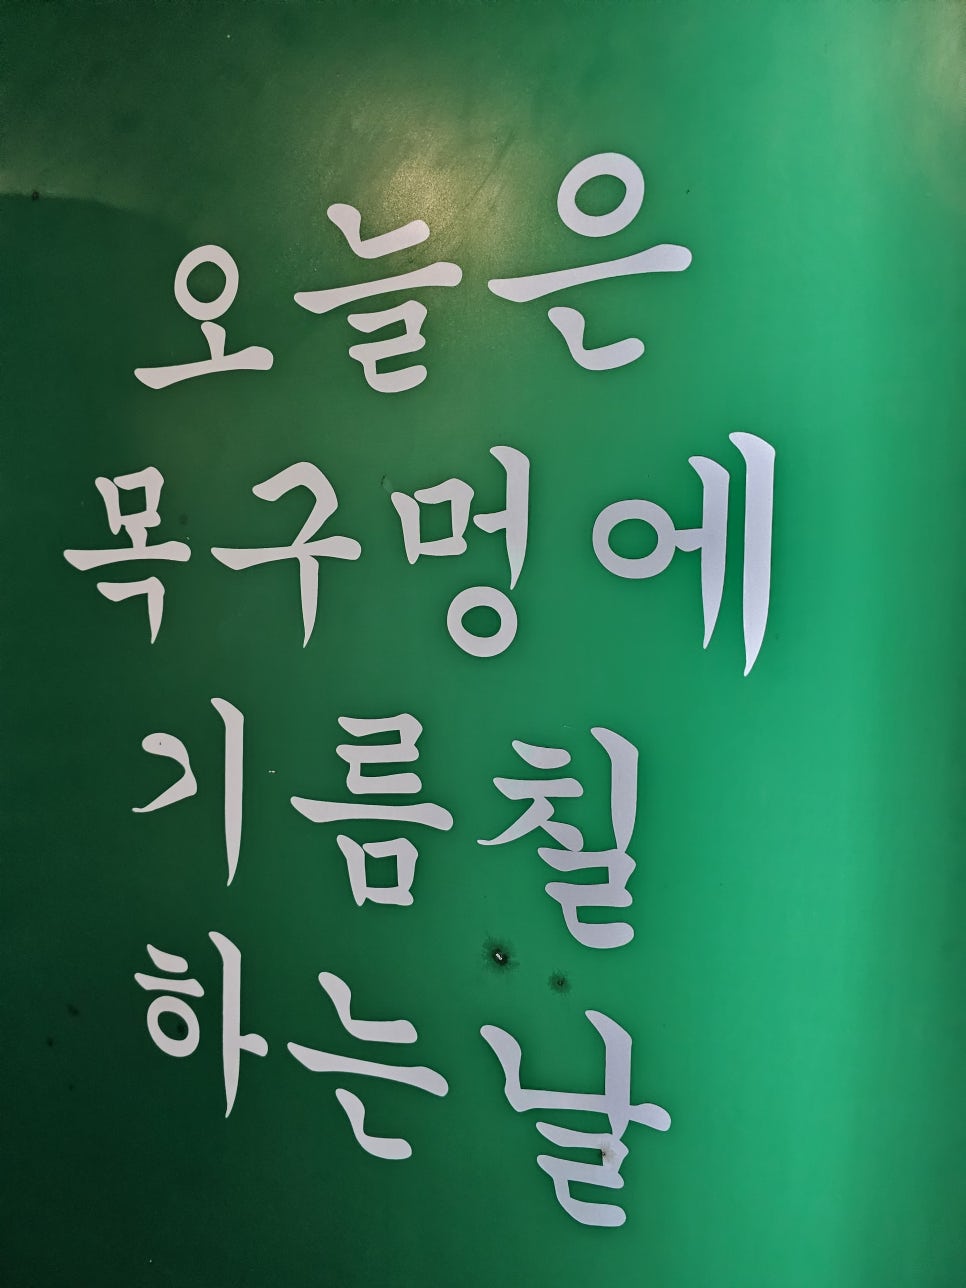 오늘은
목구멍에
기름칠
하는 날